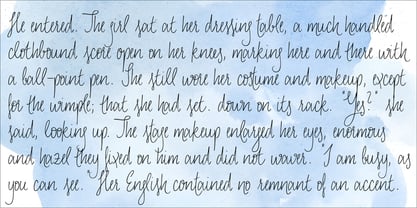 He entered. The girl sat at her dressing table, a much handled
clothbound score open on her knees, marking here and there with
a ball-point pen. She still wore her costume and makeup, except
for the wimple; that she had set. down on its rack. "Yes?" she
said, looking up. The stage makeup enlarged her eyes, enormous
and hazel they fixed on him and did not waver. "I am busy, as
you can see." Her English contained no remnant of an accent.